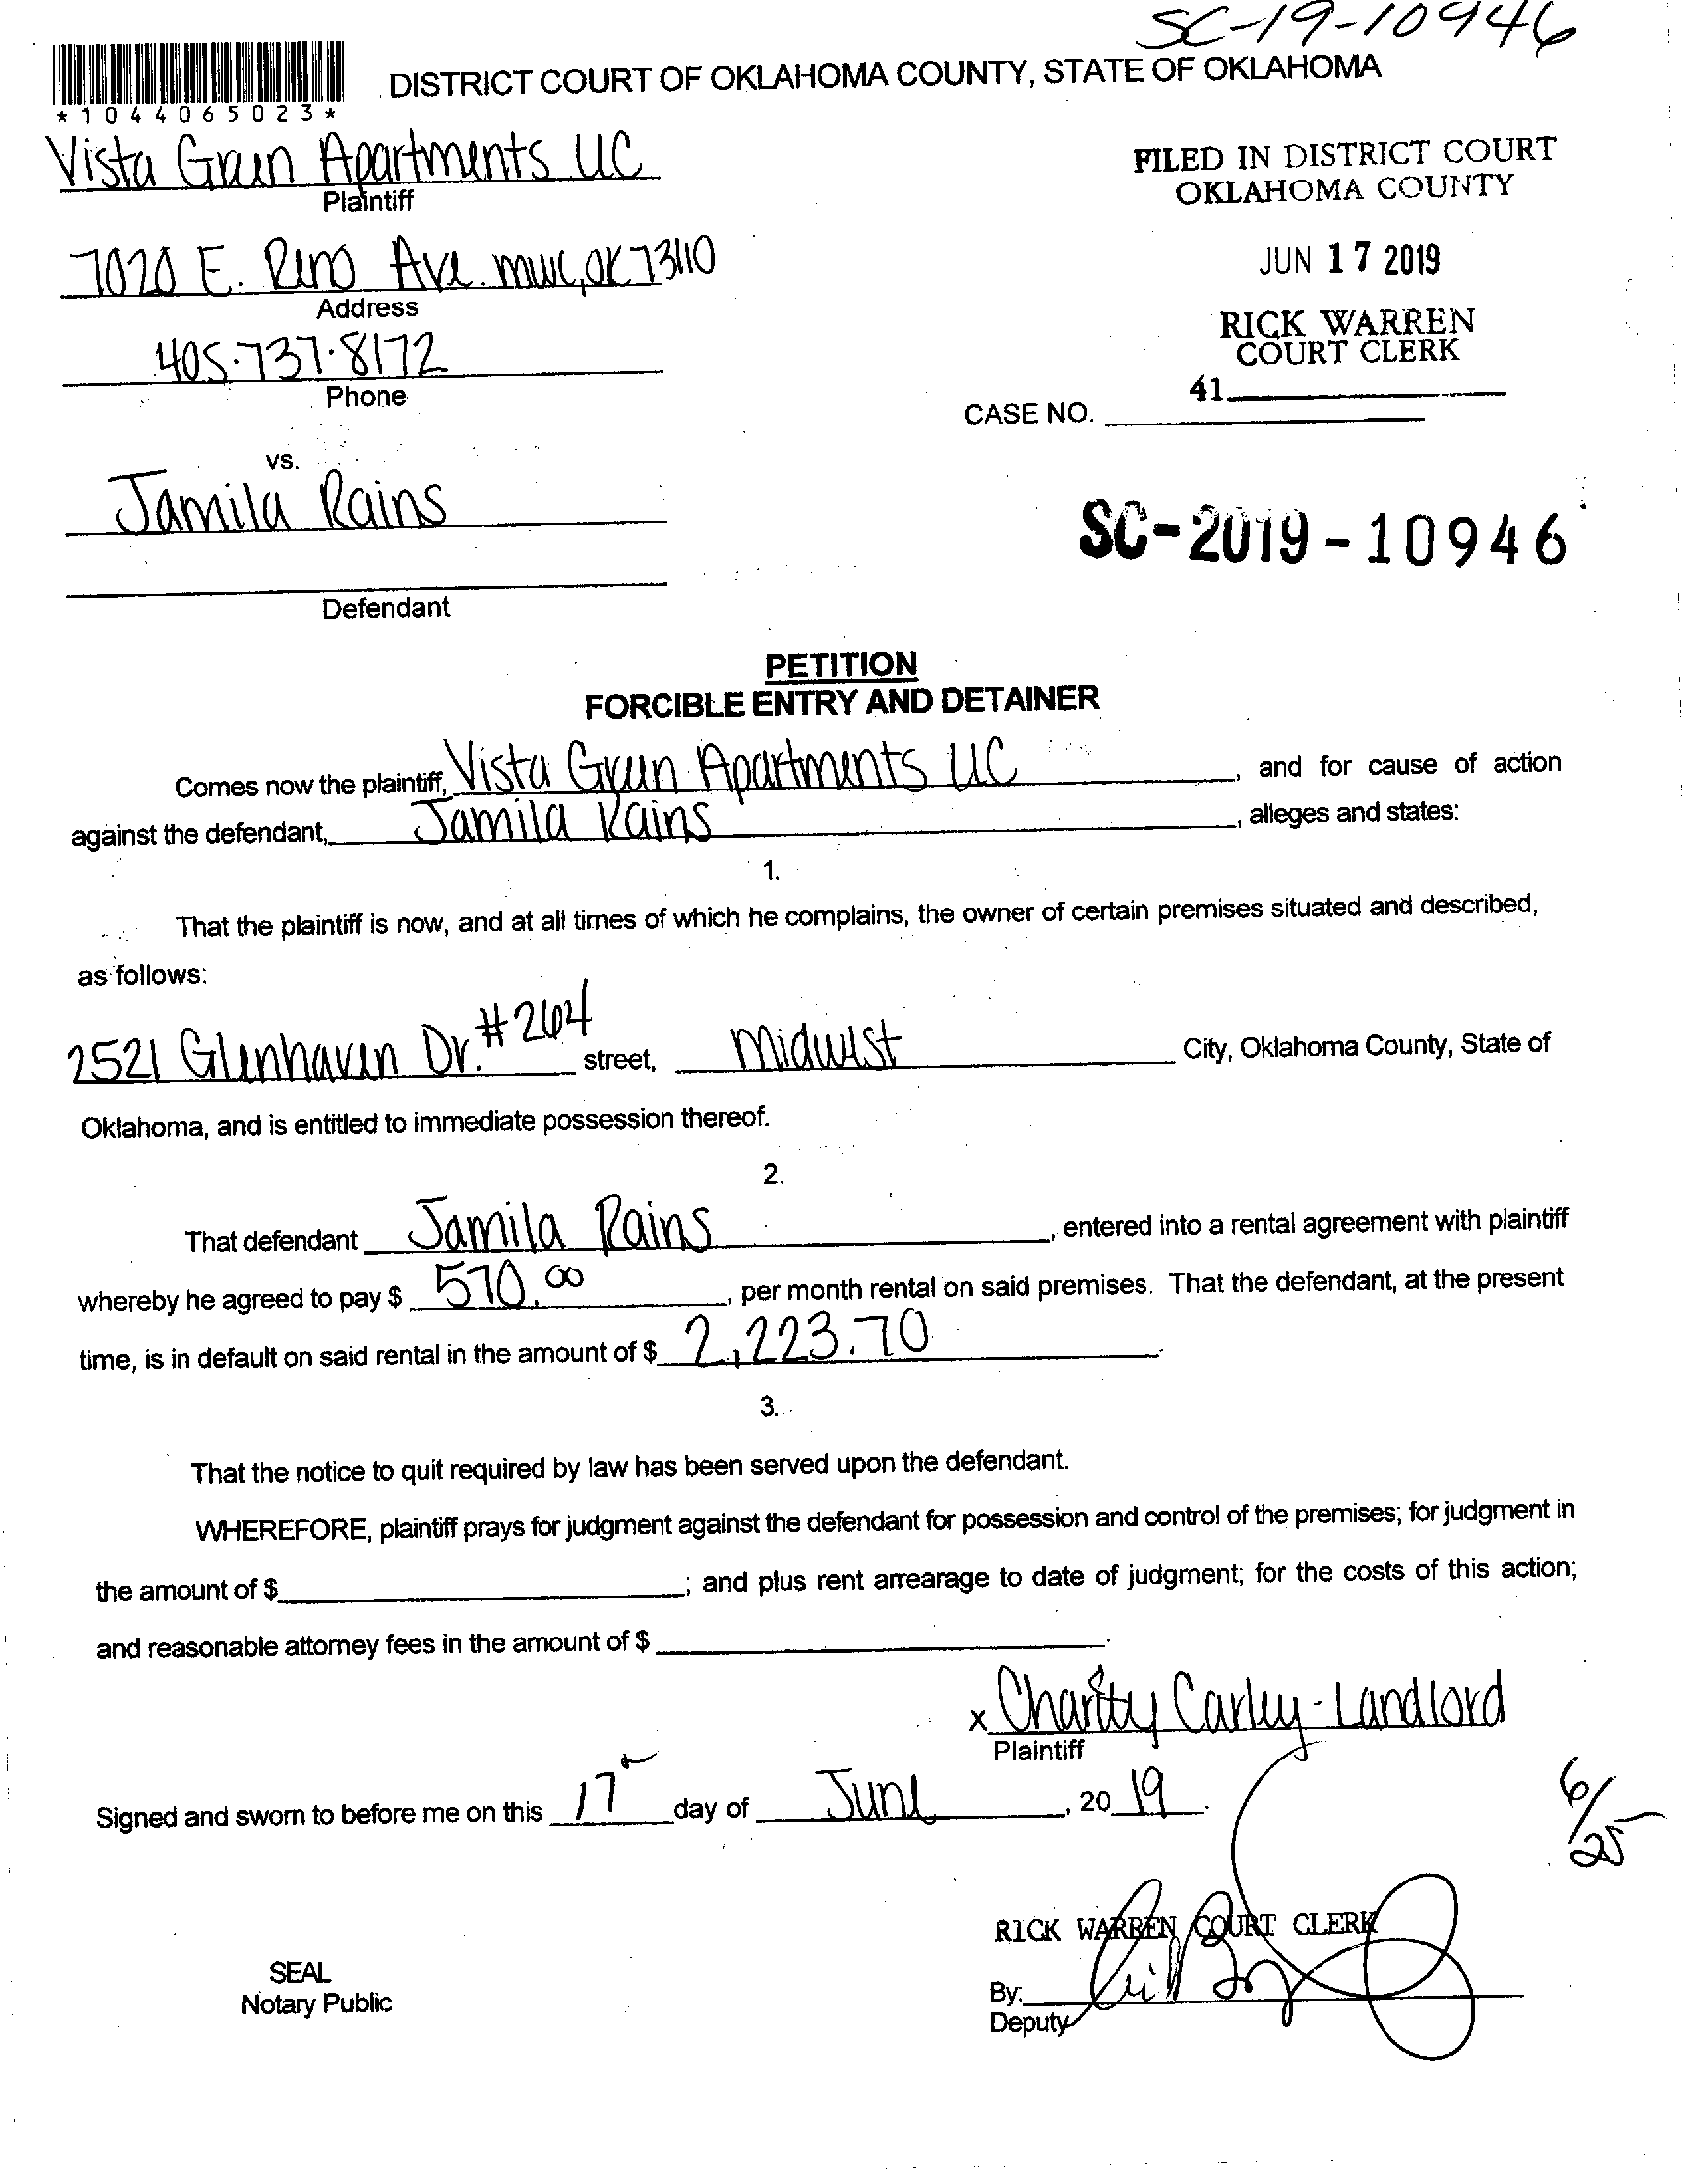 SC-19-10946
DISTRICT COURT OF OKLAHOMA COUNTY, STATE OF OKLAHOMA
*1044065023*
Vista Green Apartments LLC
Plaintiff
FILED IN DISTRICT COURT
OKLAHOMA COUNTY
7020 E. Reno Ave. MWC, OK 73110
Address
JUN 17 2019
RICK WARREN
COURT CLERK
405.737.8172
Phone
41
CASE NO.
vs.
Jamila Rains
SC-2019-10946
Defendant
PETITION
FORCIBLE ENTRY AND DETAINER
Comes now the plaintiff, Vista Green Apartments LLC, and for cause of action
against the defendant, Jamila Rains, alleges and states:
1.
That the plaintiff is now, and at all times of which he complains, the owner of certain premises situated and described,
as follows:
2521 Glenhaven Dr. #264 street, Midwest City, Oklahoma County, State of
Oklahoma, and is entitled to immediate possession thereof.
2.
That defendant Jamila Rains, entered into a rental agreement with plaintiff
whereby he agreed to pay $ 570.00, per month rental on said premises. That the defendant, at the present
time, is in default on said rental in the amount of $ 2,223.70.
3.
That the notice to quit required by law has been served upon the defendant.
WHEREFORE, plaintiff prays for judgment against the defendant for possession and control of the premises; for judgment in
the amount of $ ; and plus rent arrearage to date of judgment; for the costs of this action;
and reasonable attorney fees in the amount of $ .
x Charity Carley - Landlord
Plaintiff
Signed and sworn to before me on this 17 day of June, 20 19.
6/25
RICK WARREN COURT CLERK
SEAL
Notary Public
By:
Deputy